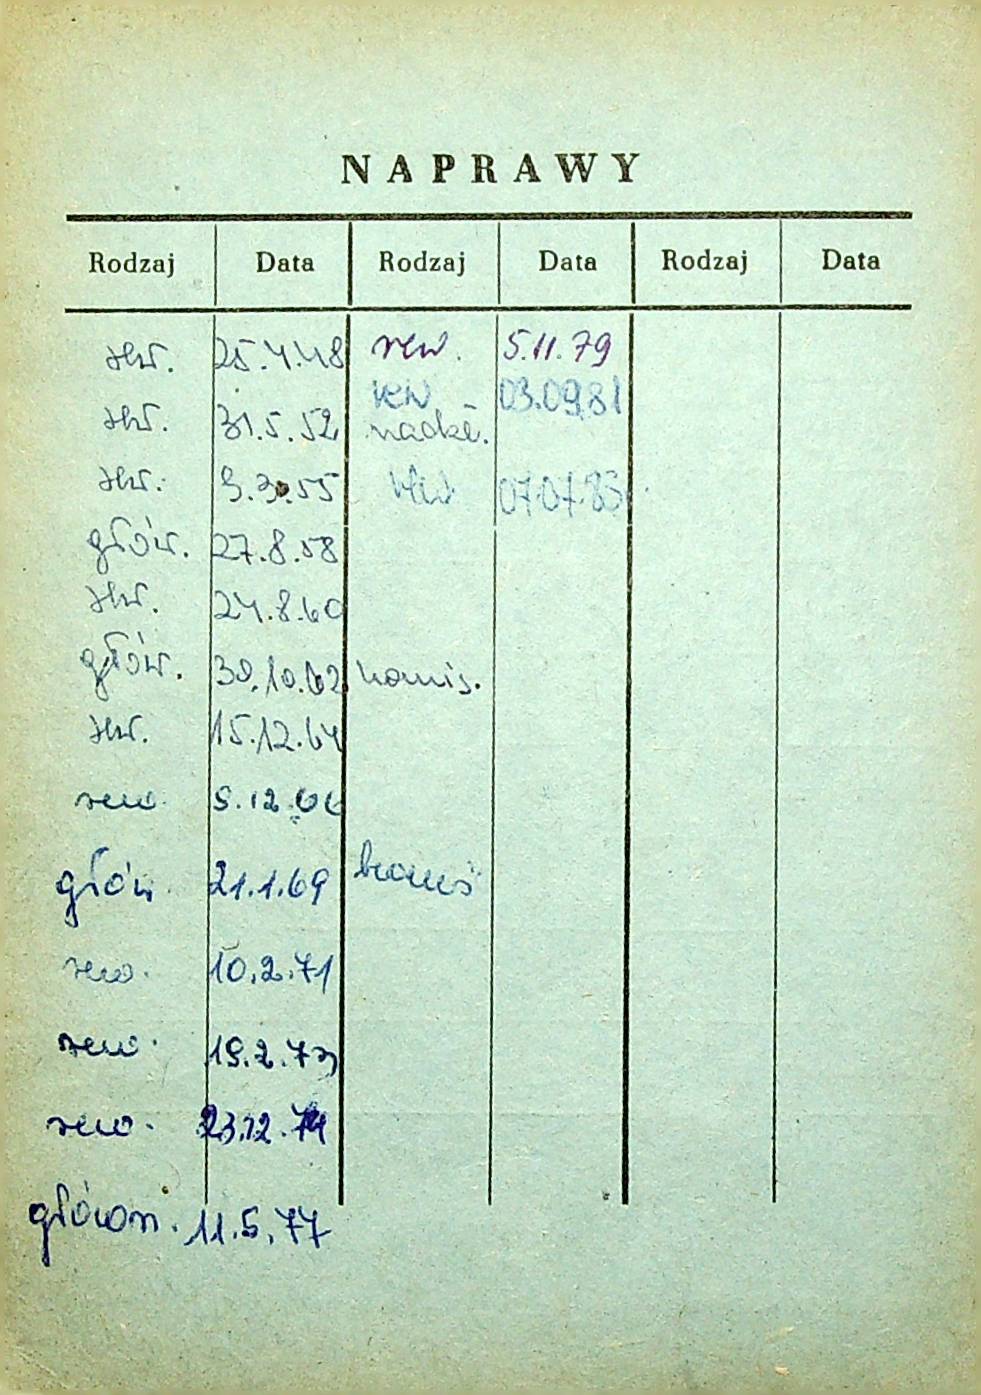 NAPRAWY
Rodzaj Data Rodzaj Data Rodzaj Data
śr. 25.4.48 rew. 5.11.79
rew 03.09.81
śr. 31.5.52
śr. 9.3.55 07.07.83
głów. 27.8.58
śr. 24.8.60
głów. 30.10.62 komis.
śr. 15.12.64
rew. 5.12.66
głów 21.1.69
rew. 10.2.71
rew. 19.2.73
rew. 23.12.74
główn. 11.5.77